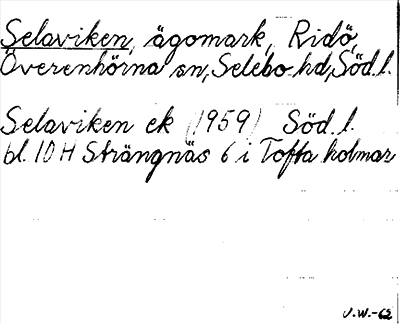 Selaviken, ägomark, Ridö,
Överenhörna sn, Selebo hd, Söd.l.
Selaviken ek (1959) Söd.l.
bl. 10 H Strängnäs 6 i Toffa holmar
J.W.-62